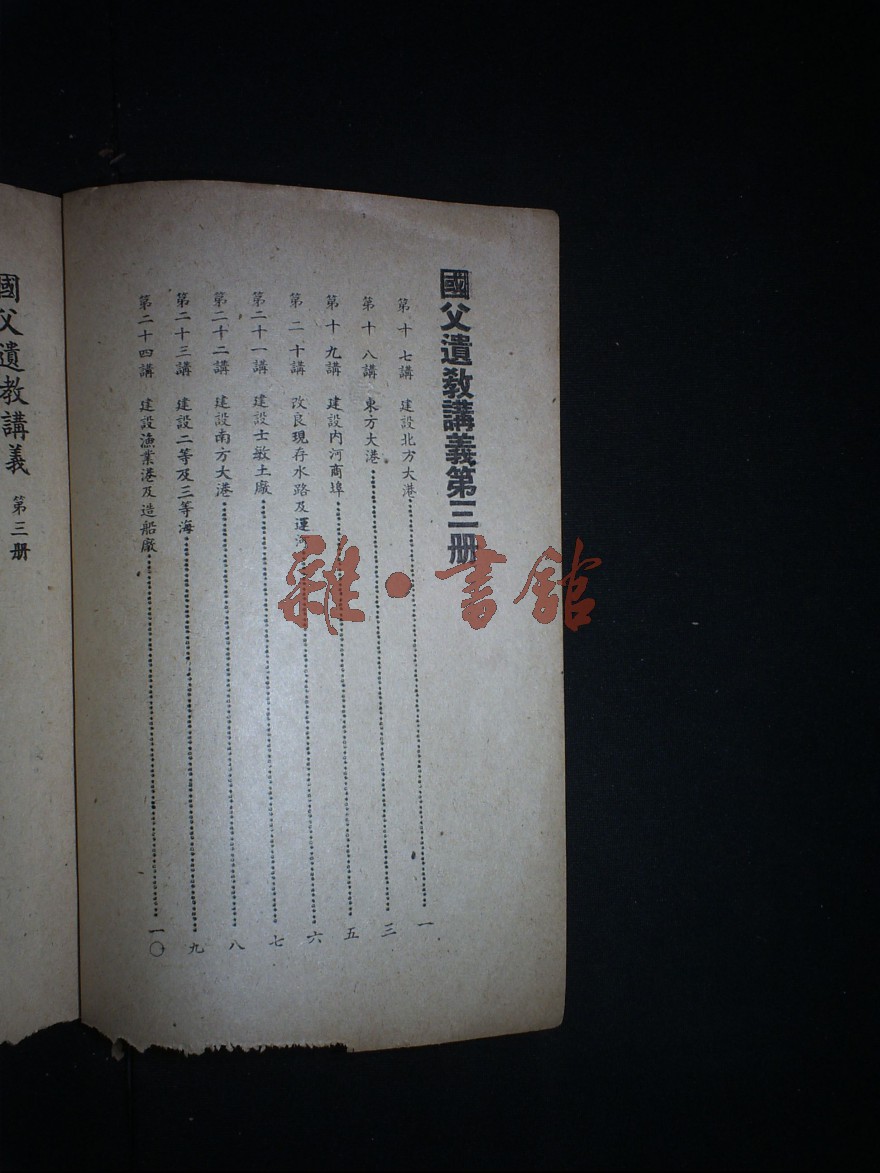 國父遺教講義第三册
第十七講 建設北方大港 一
第十八講 東方大港 三
第十九講 建設内河商埠 五
第二十講 改良現存水路及運河 六
第二十一講 建設士敏土廠 七
第二十二講 建設南方大港 八
第二十三講 建設二等及三等海 九
第二十四講 建設漁業港及造船廠 一〇
國父遺教講義 第三册
雜·書館